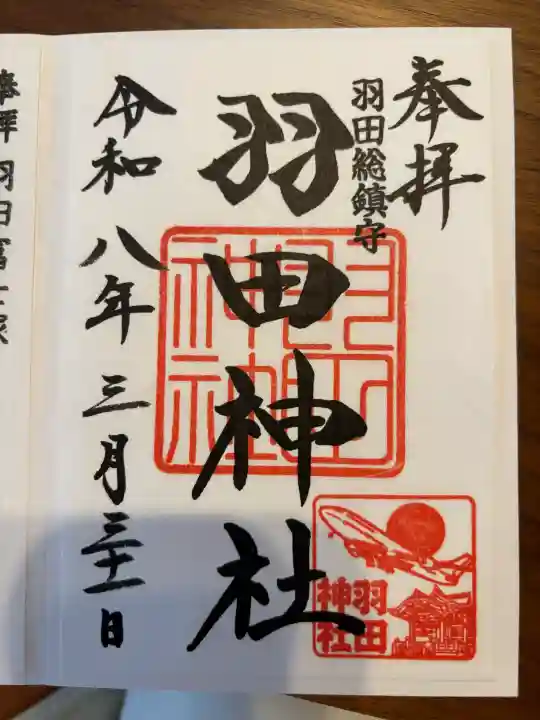 奉拝
羽田総鎮守
羽田神社
羽田神社
令和八年三月三十一日
羽田
神社
奉拝 羽田富士塚